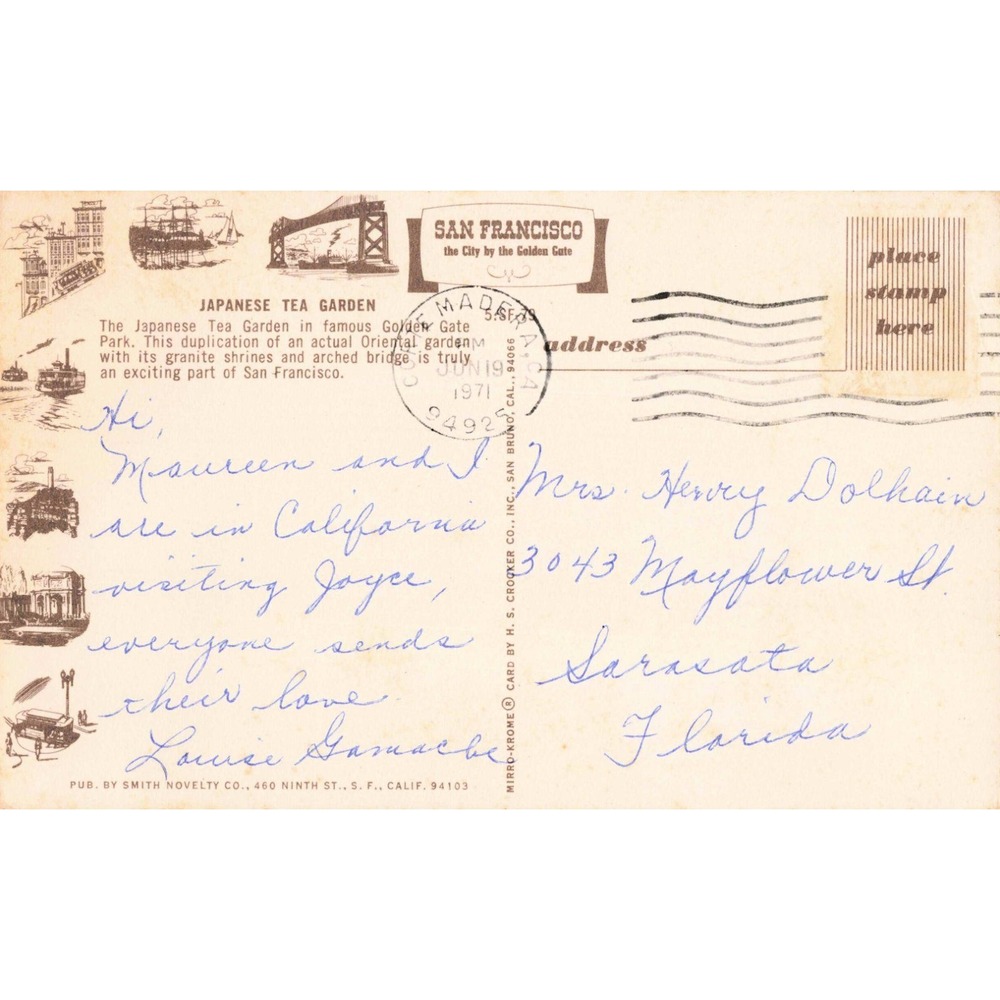 SAN FRANCISCO
the City by the Golden Gate
JAPANESE TEA GARDEN
5-SF-79
The Japanese Tea Garden in famous Golden Gate
Park. This duplication of an actual Oriental garden
with its granite shrines and arched bridge is truly
an exciting part of San Francisco.
CORTE MADERA, CA
PM
JUN 19
1971
94925
address
place
stamp
here
Hi,
Maureen and I
are in California
visiting Joyce,
everyone sends
their love
Louise Gamache
Mrs. Henry Dolhain
3043 Mayflower St.
Sarasota
Florida
MIRRO-KROME ® CARD BY H. S. CROCKER CO., INC., SAN BRUNO, CAL., 94066
PUB. BY SMITH NOVELTY CO., 460 NINTH ST., S. F., CALIF. 94103